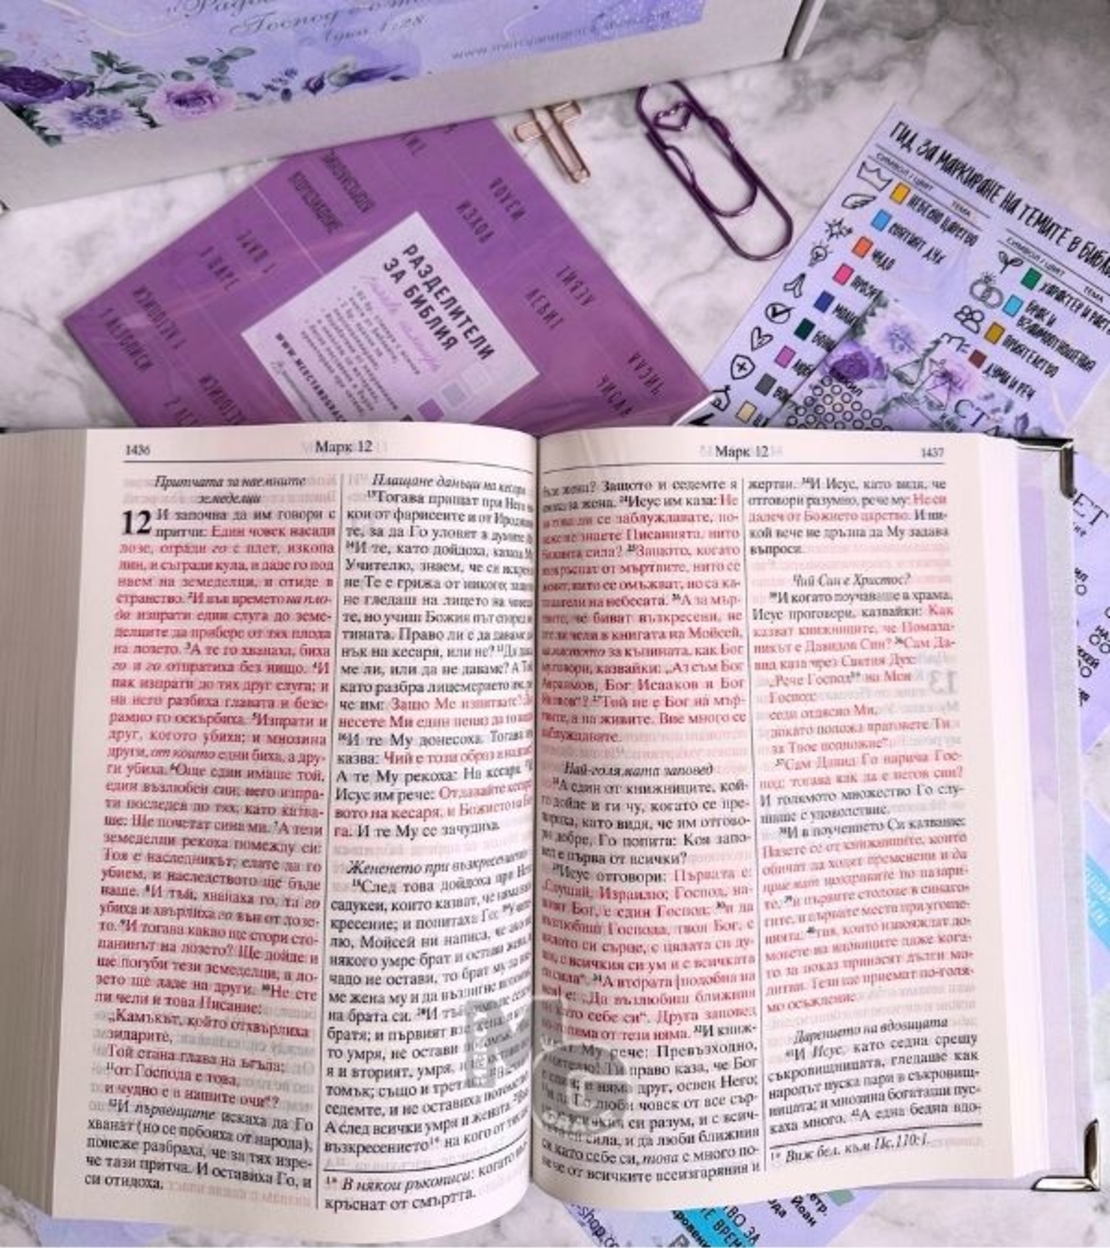 Господ е
www.mercyandgrace
РАЗДЕЛИТЕЛИ
ЗА БИБЛИЯ
ИЗХОД
ЛЕВИТ
ЧИСЛА
ГИД ЗА МАРКИРАНЕ НА ТЕМИТЕ В
СИМВОЛ / ЦВЯТ
ТЕМА
НЕБЕСНО ЦАРСТВО
СВЕТИЯТ ДУХ
ЧУДО
СИМВОЛ / ЦВЯТ
ТЕМА
ХАРАКТЕР И
БРАК И
ПРИЯТЕЛСТВО
ДУМИ И РЕЧ
1436
Марк 12
Притчата за наемните
земеделци
12 И започна да им говори с
притчи: Един човек насади
лозе, огради го с плет, изкопа
лин, и съгради кула, и даде го под
наем на земеделци, и отиде в
странство. ²И във времето на пло-
да изпрати един слуга до земе-
делците да прибере от тях плода
на лозето. ³А те го хванаха, биха
го и го отпратиха без нищо. ⁴И
пак изпрати до тях друг слуга; и
на него разбиха главата и безс-
рамно го оскърбиха. ⁵Изпрати и
друг, когото убиха; и мнозина
други, от които едни биха, а дру-
ги убиха. ⁶Още един имаше той,
един възлюбен син; него изпра-
ти последен до тях, като казва-
ше: Ще почетат сина ми. ⁷А тези
земеделци рекоха помежду си:
Тоя е наследникът; елате да го
убием, и наследството ще бъде
наше. ⁸И тъй, хванаха го, та го
убиха и хвърлиха го вън от лозе-
то. ⁹И тогава какво ще стори сто-
панинът на лозето? Ще дойде и
ще погуби тези земеделци, а ло-
зето ще даде на други. ¹⁰Не сте
ли чели и това Писание:
„Камъкът, който отхвърлиха
зидарите,
Той стана глава на ъгъла;
¹¹от Господа е това,
и чудно е в нашите очи“?
¹²И първенците искаха да Го
хванат (но се побояха от народа),
понеже разбраха, че за тях изре-
че тази притча. И оставиха Го, и
си отидоха.
Плащане данъци на кесаря
¹³Тогава пращат при Него
кои от фарисеите и от
те, за да Го уловят в
¹⁴И те, като дойдоха,
Учителю, знаем, че си
не Те е грижа от никого;
не гледаш на лицето на
те, но учиш Божия път
тината. Право ли е да даваме
нък на кесаря, или не? ¹⁵Да
ме ли, или да не даваме? А
като разбра лицемерието
че им: Защо Ме изпитвате?
несете Ми един пеняз да го
¹⁶И те Му донесоха. Тогава
казва: Чий е този образ и
А те Му рекоха: На кесаря.
Исус им рече: Отдавайте
вото на кесаря, и Божието на Бо-
га. И те Му се зачудиха.
Жененето при възкресението
¹⁸След това дойдоха при
садукеи, които казват, че няма
кресение; и попитаха Го:
лю, Мойсей ни написа, че
някого умре брат и остави жена,
чадо не остави, то брат му да
ме жена му и да въздигне
на брата си. ²⁰И
братя; и първият взе жена
то умря, не остави
я и вторият, умря, и
томък; също и
седемте, и не оставиха
А след всички умря и жената.
възкресението¹* на кого от
¹* В някои ръкописи: когато
кръснат от смъртта.
Марк 12
1437
жена? Защото и седемте я
за жена. ²⁴Исус им каза: Не
ли се заблуждавате, по-
не знаете Писанията, нито
сила? ²⁵Защото, когато
от мъртвите, нито се
нито се омъжват, но са ка-
на небесата. ²⁶А за мър-
че биват възкресени, не
чели в книгата на Мойсей,
за къпината, как Бог
говори, казвайки: „Аз съм Бог
Бог Исааков и Бог
²⁷Той не е Бог на мър-
а на живите. Вие много се
заблуждавате.
Най-голямата заповед
²⁸А един от книжниците, кой-
то дойде и ги чу, когато се пре-
като видя, че им отгово-
добре, Го попита: Коя запо-
вед е първа от всички?
²⁹Исус отговори: Първата е:
„Слушай, Израилю; Господ, на-
шият Бог, е един Господ; ³⁰и да
възлюбиш Господа, твоя Бог, с
цялото си сърце, с цялата си ду-
ша, с всичкия си ум и с всичката
си сила“. ³¹А втората [подобна на
е: „Да възлюбиш ближния
като себе си“. Друга заповед
по-голяма от тези няма. ³²И книж-
Му рече: Превъзходно,
Ти право каза, че Бог
и няма друг, освен Него;
и да Го люби човек от все сър-
си разум, и с всич-
сила, и да люби ближния
си като себе си, това е много по-
вече от всичките всеизгаряния и
жертви. ³⁴И Исус, като видя, че
отговори разумно, рече му: Не си
далеч от Божието царство. И ни-
кой вече не дръзна да Му задава
въпроси.
Чий Син е Христос?
³⁵И когато поучаваше в храма,
Исус проговори, казвайки: Как
казват книжниците, че Помаза-
никът е Давидов Син? ³⁶Сам Да-
вид каза чрез Святия Дух:
„Рече Господ¹* на Моя
Господ:
седи отдясно Ми,
докато положа враговете Ти
за Твое подножие“.
³⁷Сам Давид Го нарича Гос-
под; тогава как да е негов син?
И голямото множество Го слу-
шаше с удоволствие.
³⁸И в поучението Си казваше:
Пазете се от книжниците, които
обичат да ходят пременени и да
приемат поздравите по пазари-
те, ³⁹и първите столове в синаго-
гите, и първите места при угоще-
нията; ⁴⁰тия, които изяждат до-
мовете на вдовиците даже кога-
то за показ принасят дълги мо-
литви. Тези ще приемат по-голя-
мо осъждение.
Дарението на вдовицата
⁴¹И Исус, като седна срещу
съкровищницата, гледаше как
народът пуска пари в съкровищ-
ницата; и мнозина богаташи пус-
каха много. ⁴²А една бедна вдо-
¹* Виж бел. към Пс.110:1.
Йоан